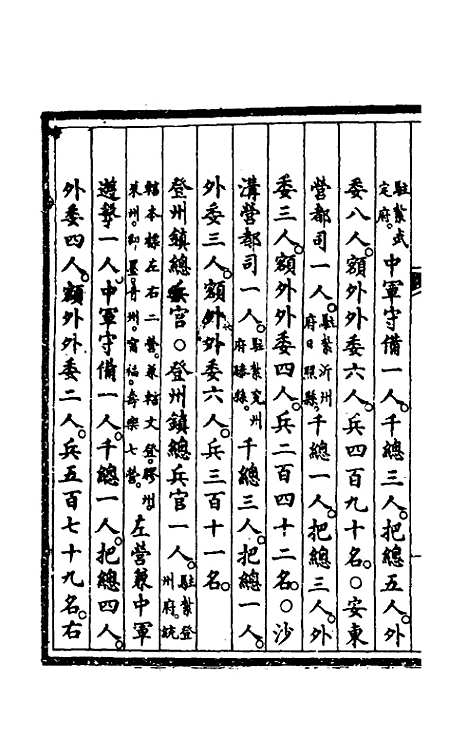 駐紮武定府。中軍守備一人。千總三人。把總五人。外
委八人。額外外委六人。兵四百九十名。○安東
營都司一人。駐紮沂州府日照縣。千總一人。把總三人。外
委三人。額外外委四人。兵二百四十二名。○沙
溝營都司一人。駐紮兗州府滕縣。千總三人。把總一人。
外委三人。額外外委六人。兵三百十一名。
登州鎮總兵官○登州鎮總兵官一人。駐紮登州府。統
轄本標左右二營。兼轄文登。膠州。萊州。即墨。青州。甯福。壽樂七營。左營兼中軍
遊擊一人。中軍守備一人。千總一人。把總四人。
外委四人。額外外委二人。兵五百七十九名。右